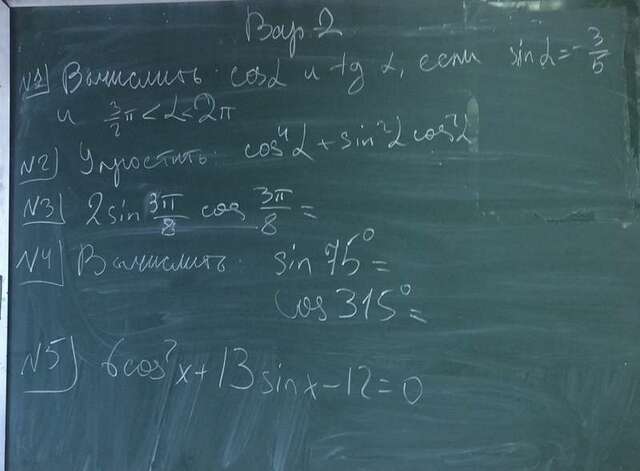 Вар 2
№1) Вычислить cosα и tg α, если sinα = -3/5
и 3/2π < α < 2π
№2) Упростить: cos⁴α + sin²α cos²α
№3) 2sin 3π/8 cos 3π/8 =
№4) Вычислить: sin 75° =
cos 315° =
№5) 6cos²x + 13 sinx - 12 = 0